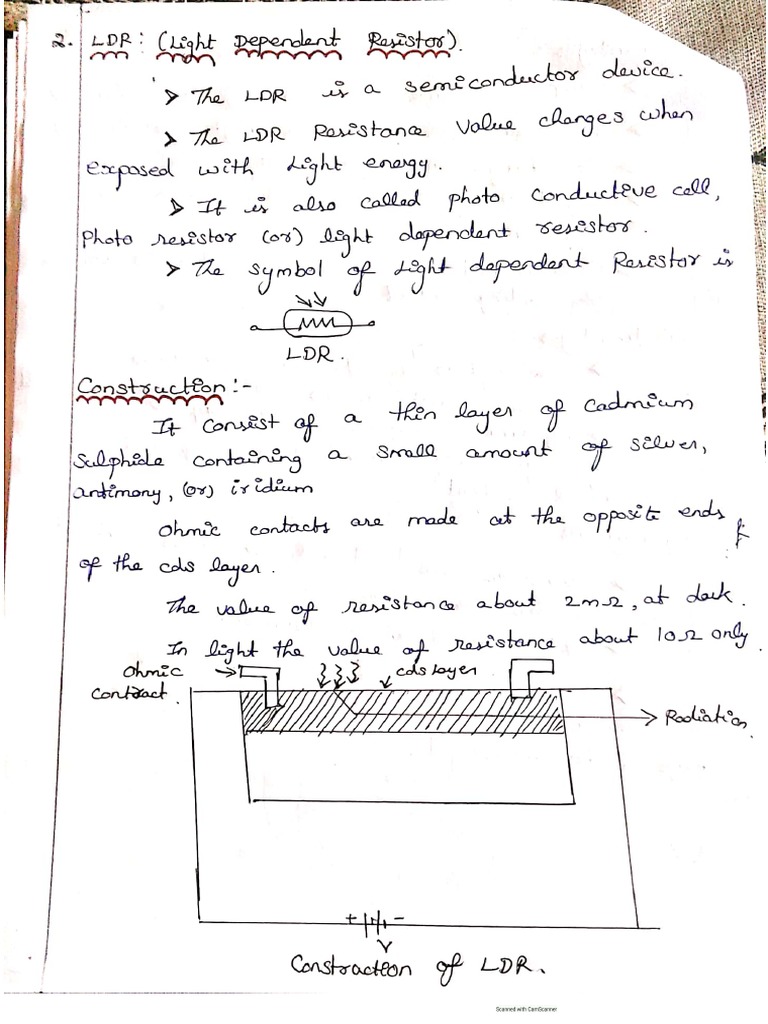 2. LDR: (Light Dependent Resistor).
➤ The LDR is a semiconductor device.
➤ The LDR Resistance Value changes when
exposed with Light energy.
➤ It is also called photo conductive cell,
Photo resistor (or) light dependent resistor.
➤ The symbol of Light dependent Resistor is
LDR.
Construction:-
It consist of a thin layer of Cadmium
Sulphide containing a small amount of silver,
antimony, (or) iridium
Ohmic contacts are made at the opposite ends
of the cds layer.
The value of resistance about 2mΩ, at dark.
In light the value of resistance about 10Ω only.
Ohmic
Contract.
cds layer
Radiation.
+ -
V
Constraction of LDR.
Scanned with CamScanner